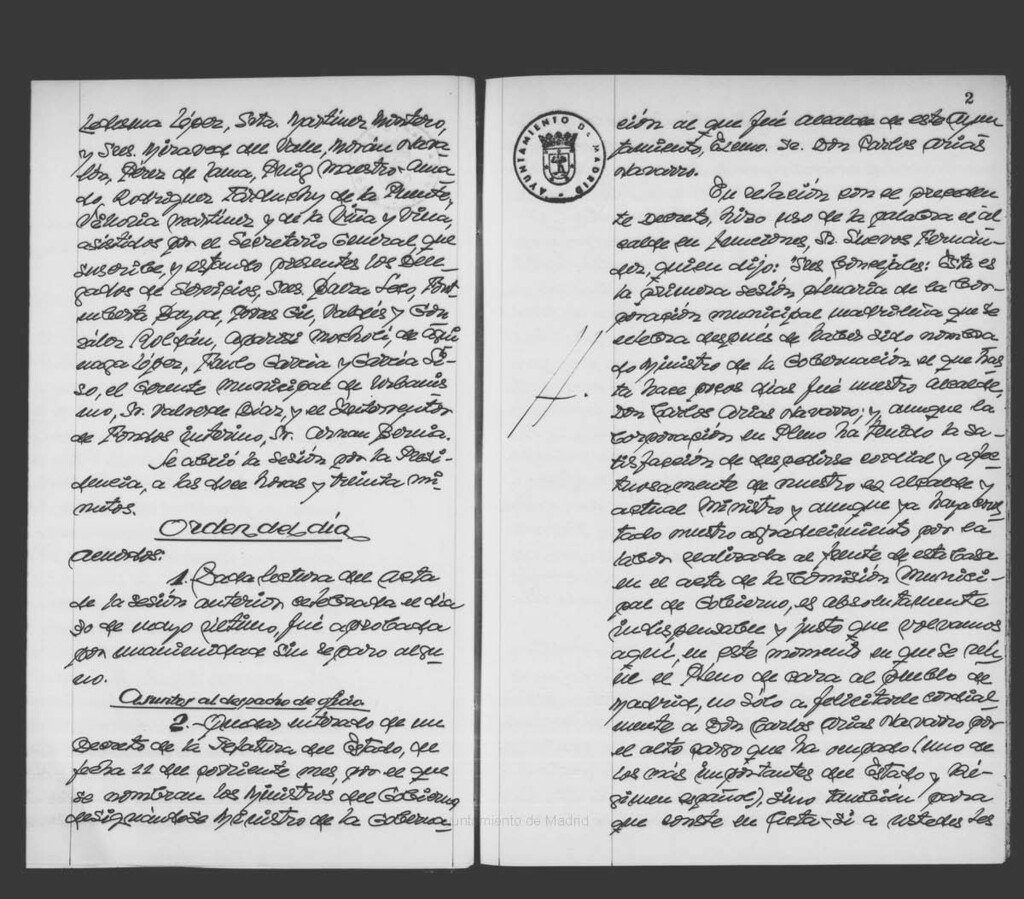 Ledesma López, Srta. Martínez Montero,
y Sres. Miravet del Valle, Morán Nava-
Pérez de Lama, Puig Maestro-Ama-
do, Rodríguez de la Puente,
Villoria Martínez y de la Viña y Villa,
asistidos por el Secretario General, que
suscribe, y estando presentes los Dele-
gados de Servicios, Sres. Parra
Bayod, Gil, Valdés y Gon
zález Roldán, Aparisi Mocholí, de Egui
naga López, Paulo García y García Si-
so, el Gerente Municipal de Urbanis
mo, Sr. Valverde Díaz, y el Interventor
de Fondos interino, Sr. Arnau Bernia.
Se abrió la sesión por la Presi-
dencia, a las doce horas y treinta mi-
nutos.
Orden del día
Acuerdos:
1. Dada lectura del acta
de la sesión anterior celebrada el día
30 de mayo último, fué aprobada
por unanimidad sin reparo algu-
no.
Asuntos al despacho de oficio
2. Quedar enterado de un
Decreto de la Jefatura del Estado, de
fecha 11 del corriente mes, por el que
se nombran los Ministros del Gobierno,
designándose Ministro de la Goberna-
2
AYUNTAMIENTO DE MADRID
ción al que fué Alcalde de este Ayun
tamiento, Excmo. Sr. Don Carlos Arias
Navarro.
En relación con el preceden
te Decreto, hizo uso de la palabra el al
calde en funciones, Sr. Suevos Fernán-
dez, quien dijo: "Sres Concejales: Esta es
la primera sesión plenaria de la Cor-
poración municipal madrileña que se
celebra después de haber sido nombra
do Ministro de la Gobernación el que has
ta hace pocos días fué nuestro Alcalde,
Don Carlos Arias Navarro; y, aunque la
Corporación en Pleno ha tenido la sa-
tisfacción de despedirse cordial y afec-
tuosamente de nuestro ex alcalde y
actual Ministro y aunque ya haya cons
tado nuestro agradecimiento por la
labor realizada al frente de esta Casa
en el acta de la Comisión Munici-
pal de Gobierno, es absolutamente
indispensable y justo que volvamos
aquí, en este momento en que se reú-
ne el Pleno de cara al pueblo de
Madrid, no sólo a felicitarle cordial
mente a Don Carlos Arias Navarro por
el alto cargo que ha ocupado (uno de
los más importantes del Estado y Ré-
gimen español), sino también para
que conste en acta -si a ustedes les
Ayuntamiento de Madrid